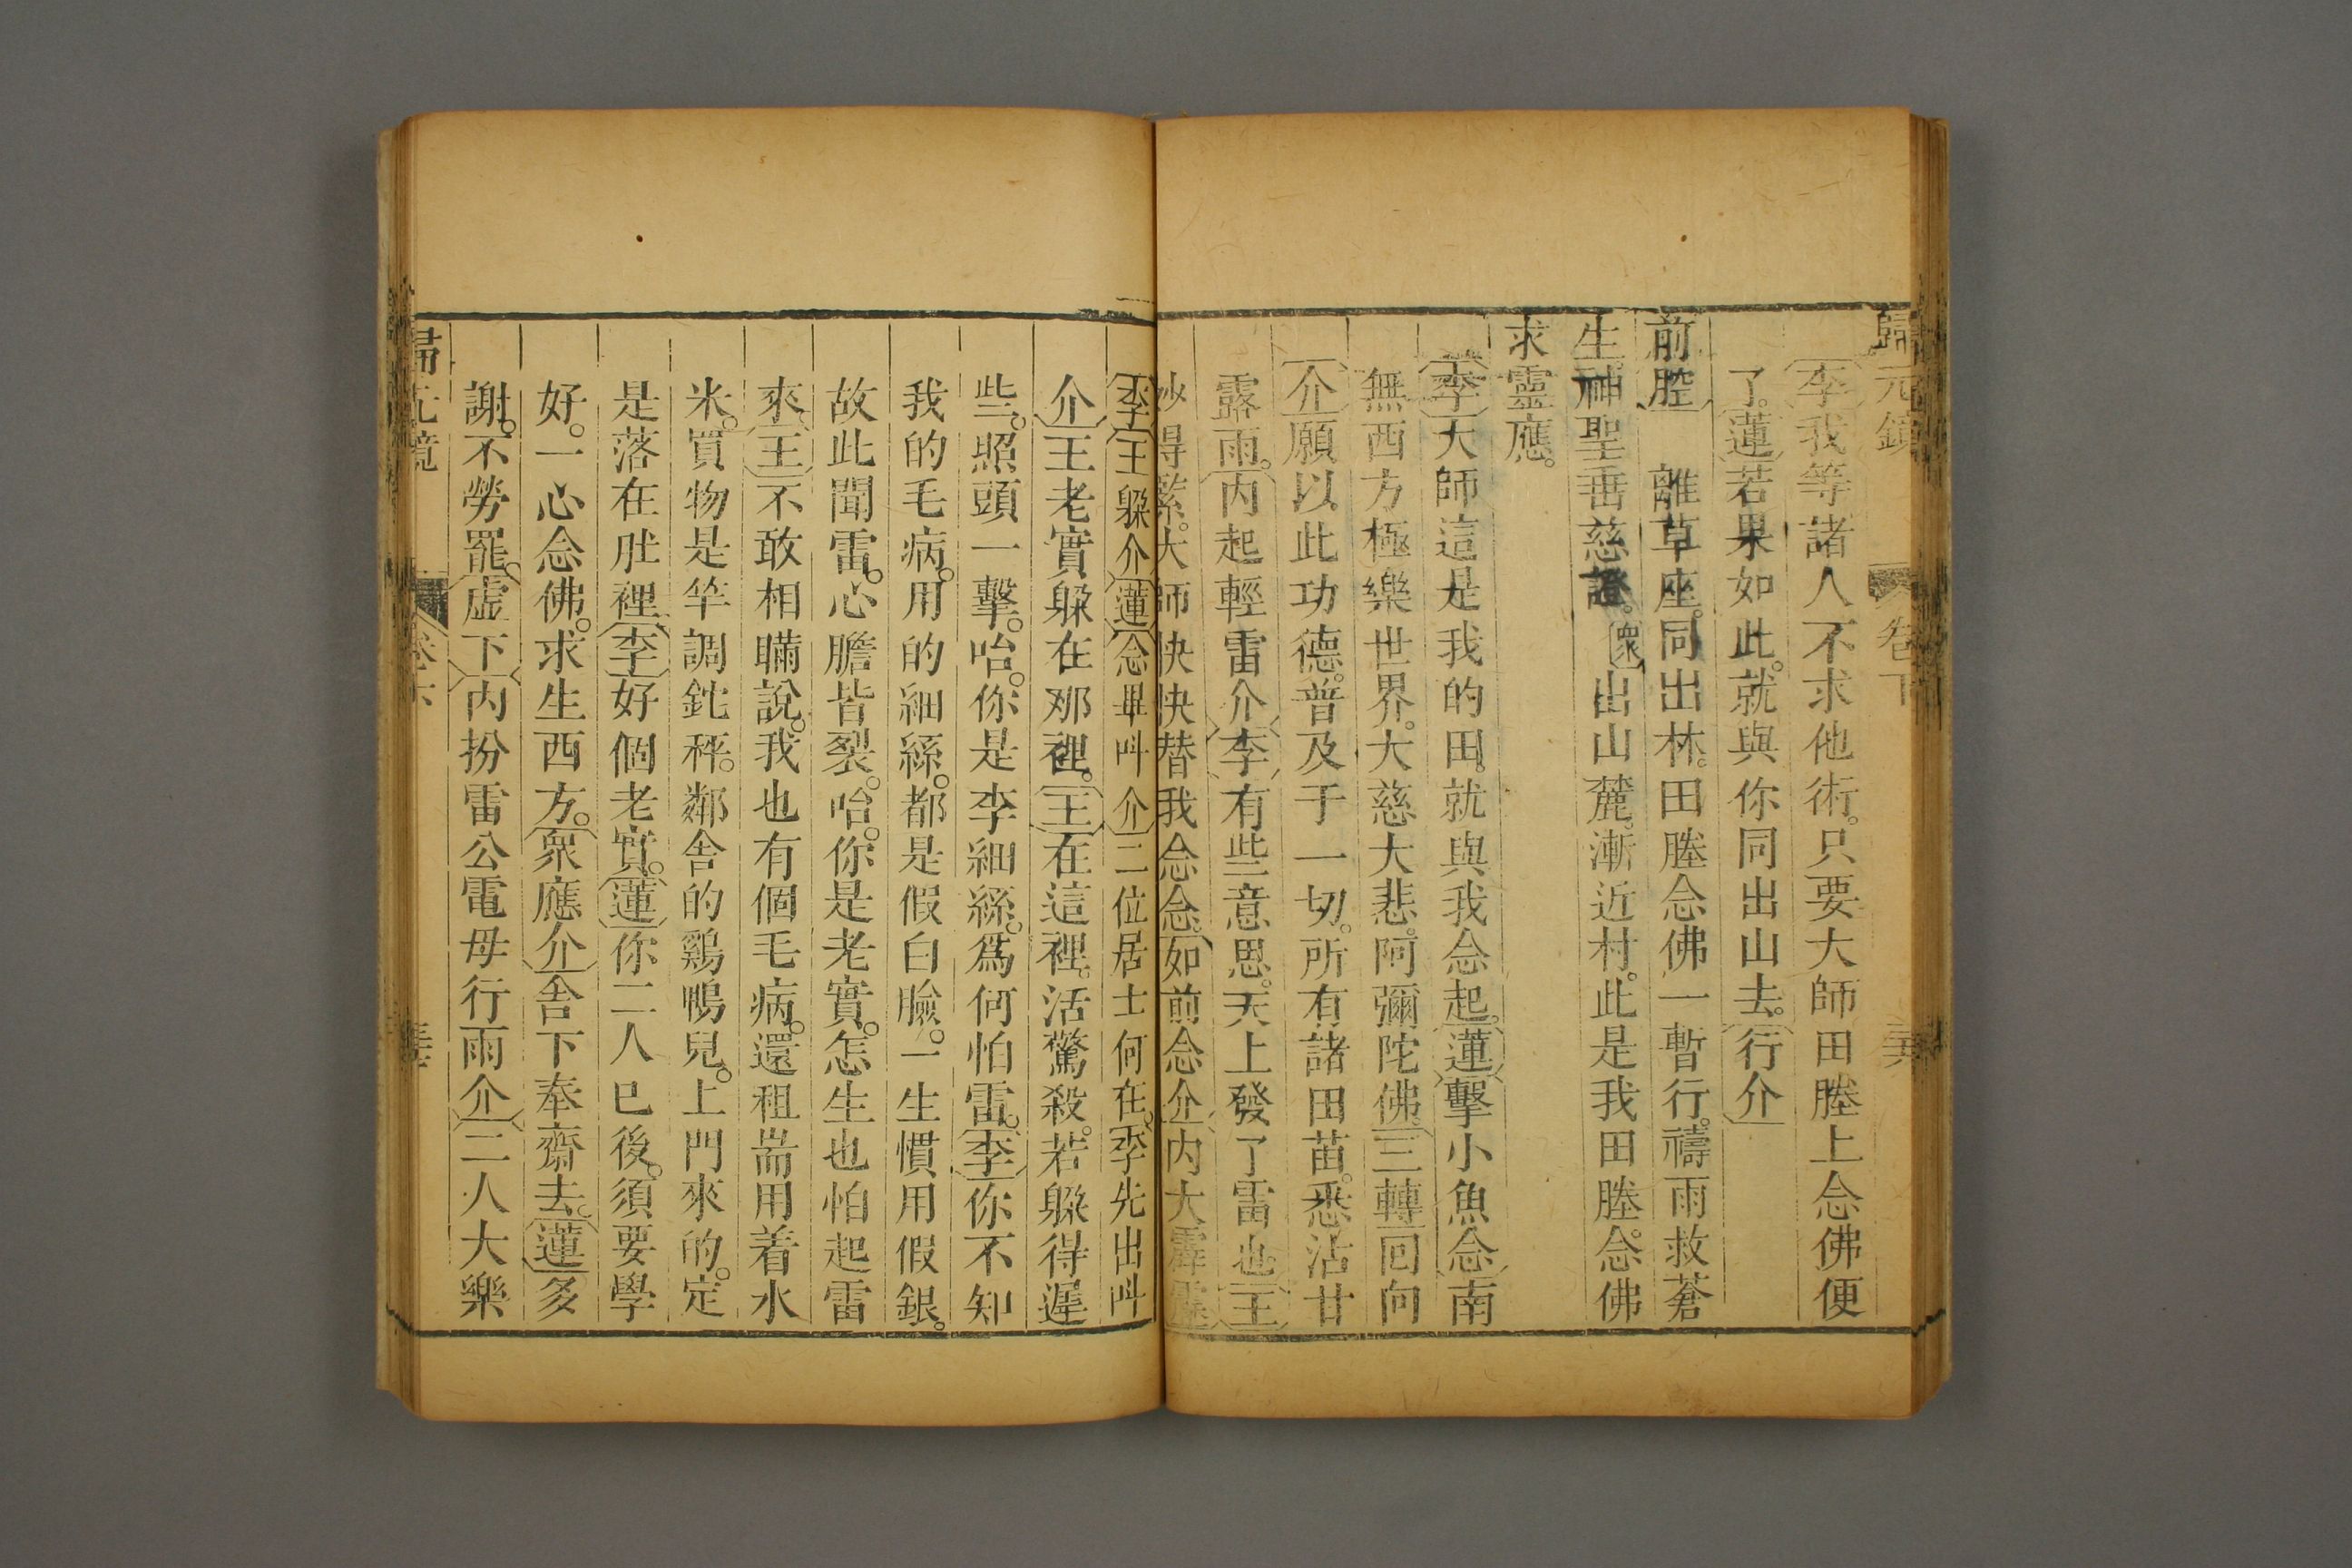 歸元鏡 卷下
李我等諸人不求他術。只要大師田塍上念佛便
了。蓮若果如此。就與你同出山去。行介
前腔 離草座。同出林。田塍念佛一暫行。禱雨救蒼
生。神聖垂慈證。衆出山麓。漸近村。此是我田塍。念佛
求靈應。
李大師這是我的田。就與我念起。蓮擊小魚念南
無西方極樂世界。大慈大悲。阿彌陀佛。三轉回向
介願以此功德。普及于一切。所有諸田苗。悉沾甘
露雨。內起輕雷介李有些意思。天上發了雷也王
妙得緊。大師快快替我念念。如前念介內大霹靂
李王躱介蓮念畢呌介二位居士何在。李先出呌
介王老實躱在那裡。王在這裡。活驚殺。若躱得遲
些。照頭一擊。咍。你是李細絲。爲何怕雷。李你不知
我的毛病。用的細絲。都是假白臉。一生慣用假銀。
故此聞雷。心膽皆裂。咍。你是老實。怎生也怕起雷
來。王不敢相瞞說。我也有個毛病。還租耑用着水
米。買物是竿調鈋秤。鄰舍的鷄鴨兒。上門來的。定
是落在肚裡。李好個老實。蓮你二人已後。須要學
好。一心念佛。求生西方。衆應介舍下奉齋去。蓮多
謝。不勞罷。虛下內扮雷公電母行雨介二人大樂